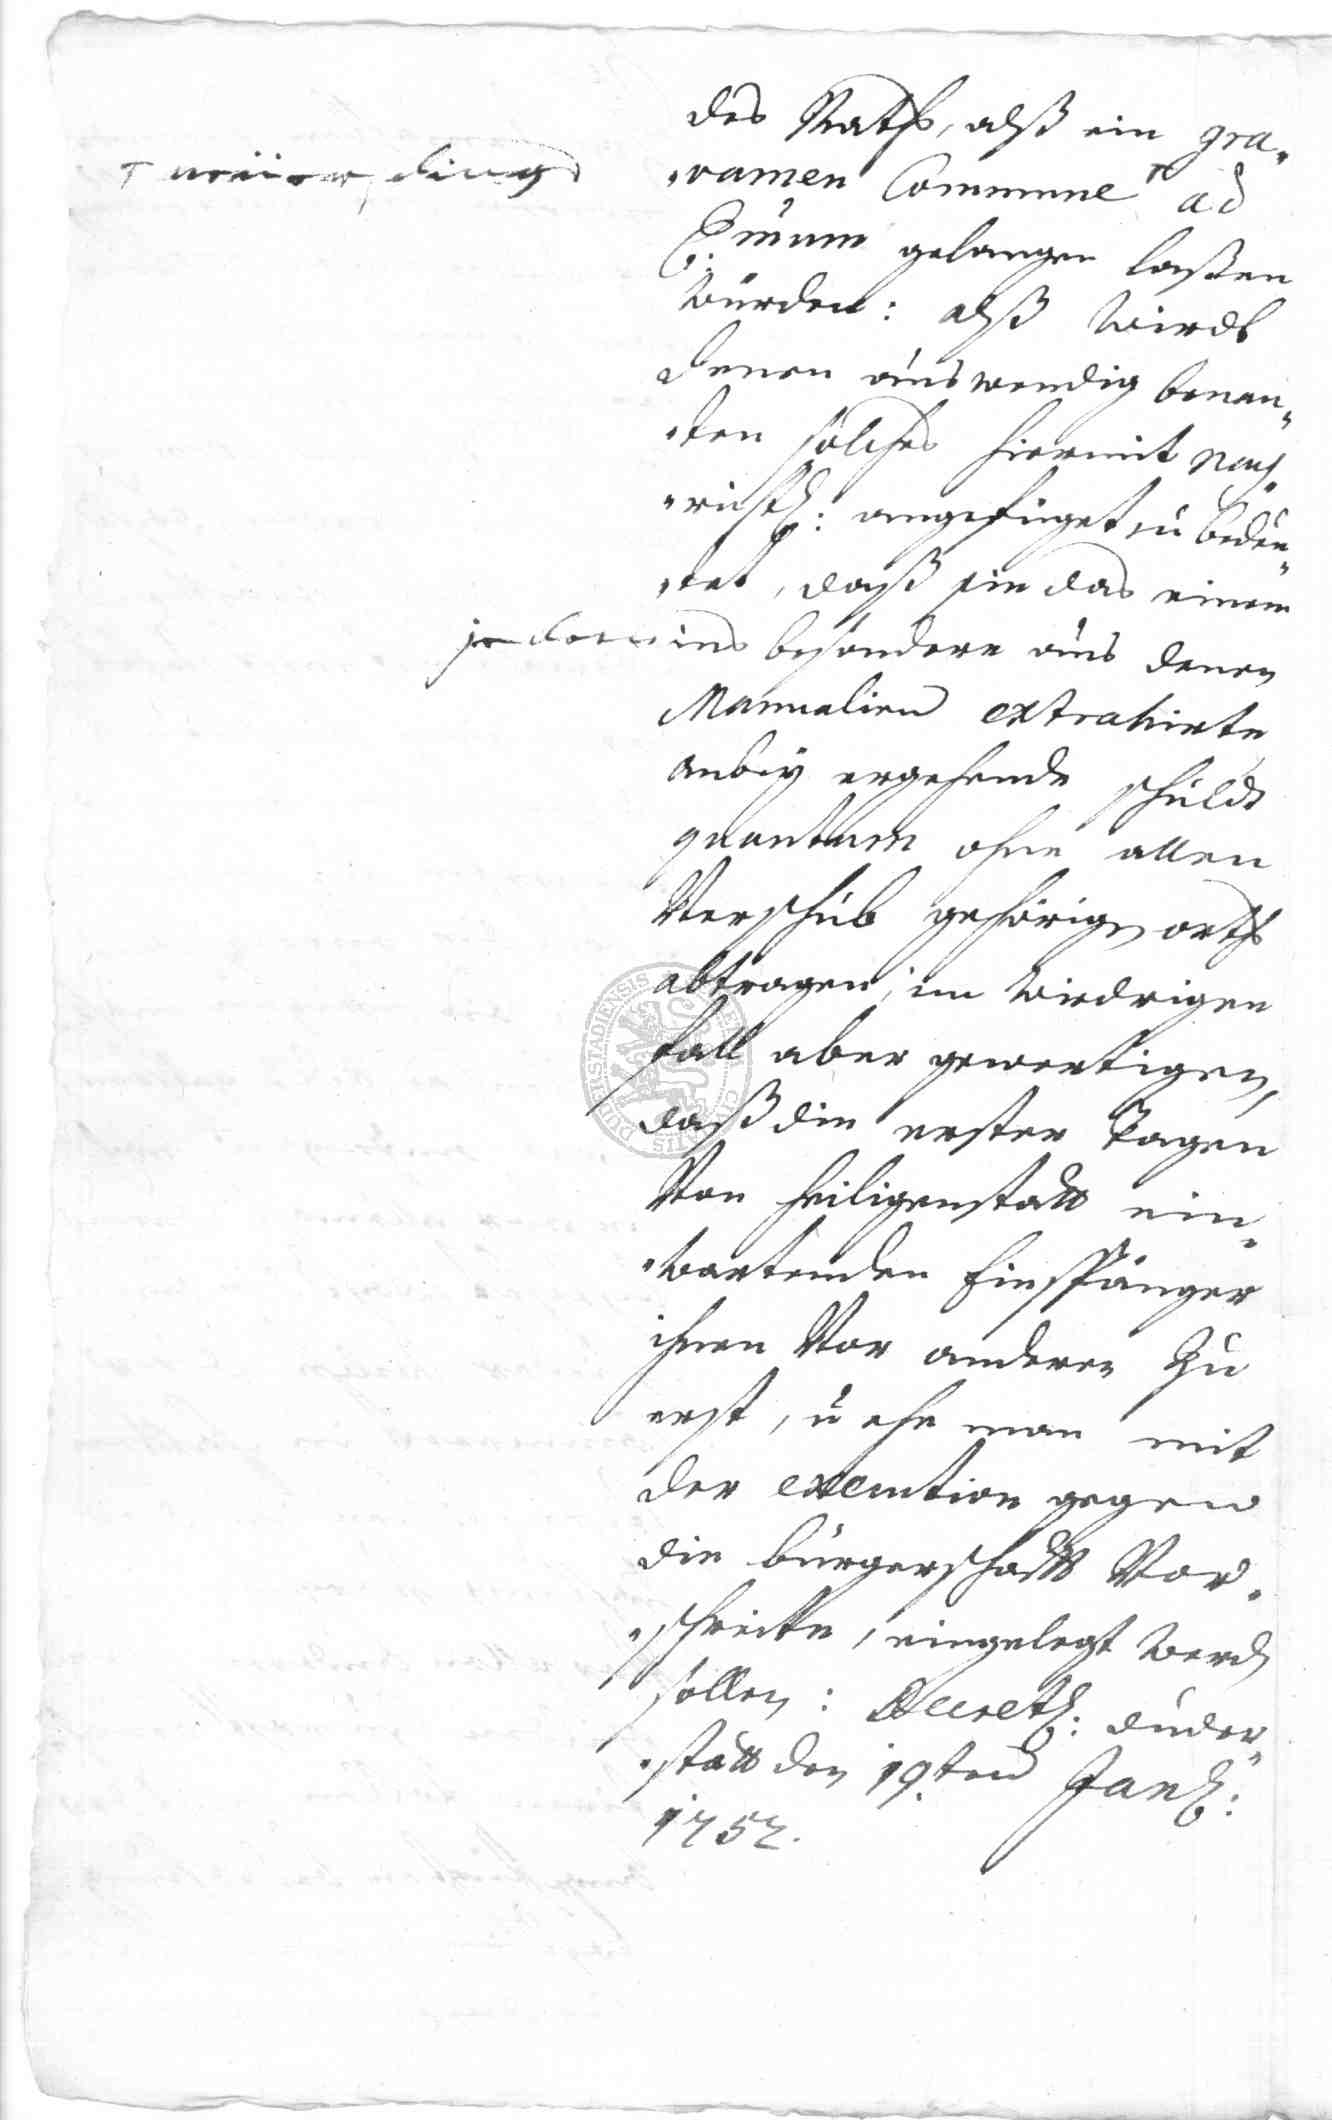 des Raths, alß ein gra-
⊤ neüerdings
vamen Commune ⊤ ad
Emum gelangen laßen
würden: alß wirdt
denen auswendig benan-
ten solches hiermit nach-
richtl: angefüget u bedeu-
tet, daß sie das einem
jedem ins besondere aus denen
Manualien extrahirte
anbey ergehende schuldt
quantum ohne allen
Verschub gehörigen orths
abtragen, im wiedrigen
fall aber gewertigen,
daß die erster Tagen
Von Heiligenstatt ein-
wartenden Einspänger
ihnen Vor anderen Zu
erst, u ehe man mit
der execution gegen
die bürgerschafft Vor-
schreitte, eingelegt werden
sollen: Decret: duder-
statt den 19ten Jan:
1752.
DUDERSTADIENSIS CIVITATIS